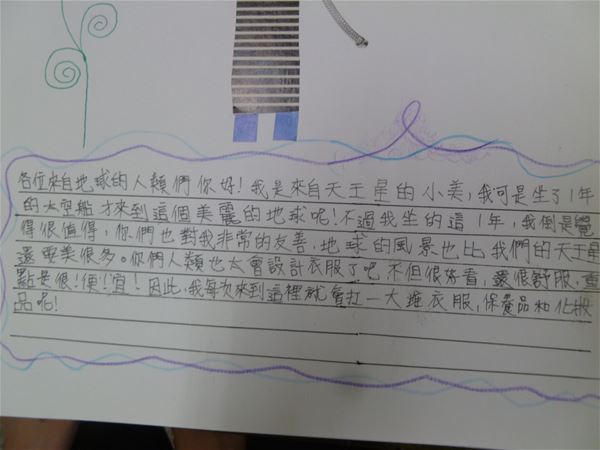 各位來自地球的人類們你好!我是來自天王星的小美,我可是坐了1年
的太空船才來到這個美麗的地球呢!不過我坐的這1年,我倒是覺
得很值得,你們也對我非常的友善,地球的風景也比我們的天王星
還要美很多。你們人類也太會設計衣服了吧不但很好看,還很舒服,重
點是很!便!宜!因此,我每次來到這裡就會扛一大堆衣服,保養品和化妝
品呢!